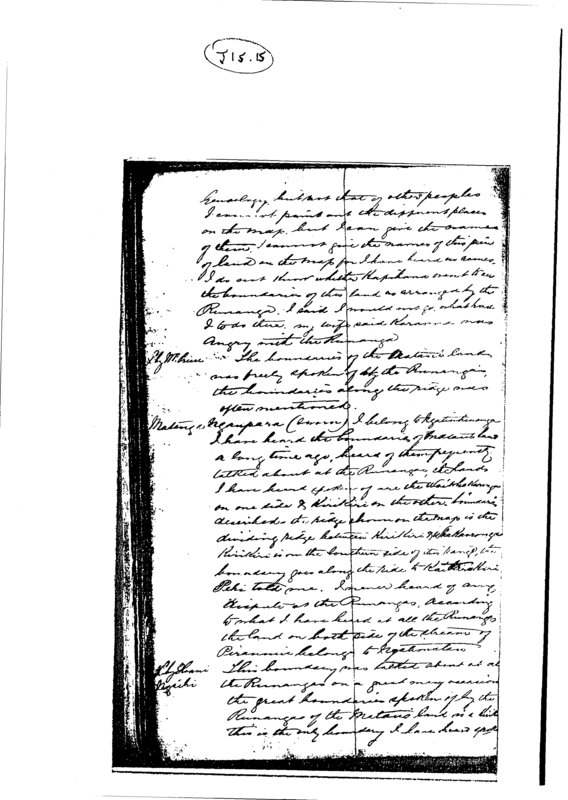 J 15.15
Genealogy, but not that of other peoples
I cannot point out the different places
on the map but I can give the names
of them, I cannot give the names of this piece
of land on the map for I have heard no names,
I do not know whether Kapihana went to see
the boundaries of this land as arranged by the
Runanga. I said I would not go, what had
I to do there, my wife said was
angry with the Runanga
By Mr. The boundaries of the land
was freely spoken of by the Runangas,
the boundaries along the ridge was
often mentioned.
(Sworn) I belong to
I have heard the boundaries of land
a long time ago, heard of them frequently
talked about at the Runangas, the lands
I have heard spoken of are the
on one side & Kirikiri on the other boundaries
described the ridge shown on the map is the
dividing ridge between Kirikiri &
Kirikiri is on the Southern side of this range, this
boundary goes along the ridge to
told me. I never heard of any
dispute at the Runangas, according
to what I have heard at all the Runangas
the land on both side of the stream of
belongs to
By This boundary was talked about at all
the Runangas on a great many occasions
the great boundaries spoken of by the
Runangas of the land is a
this is the only boundary I have heard spoken